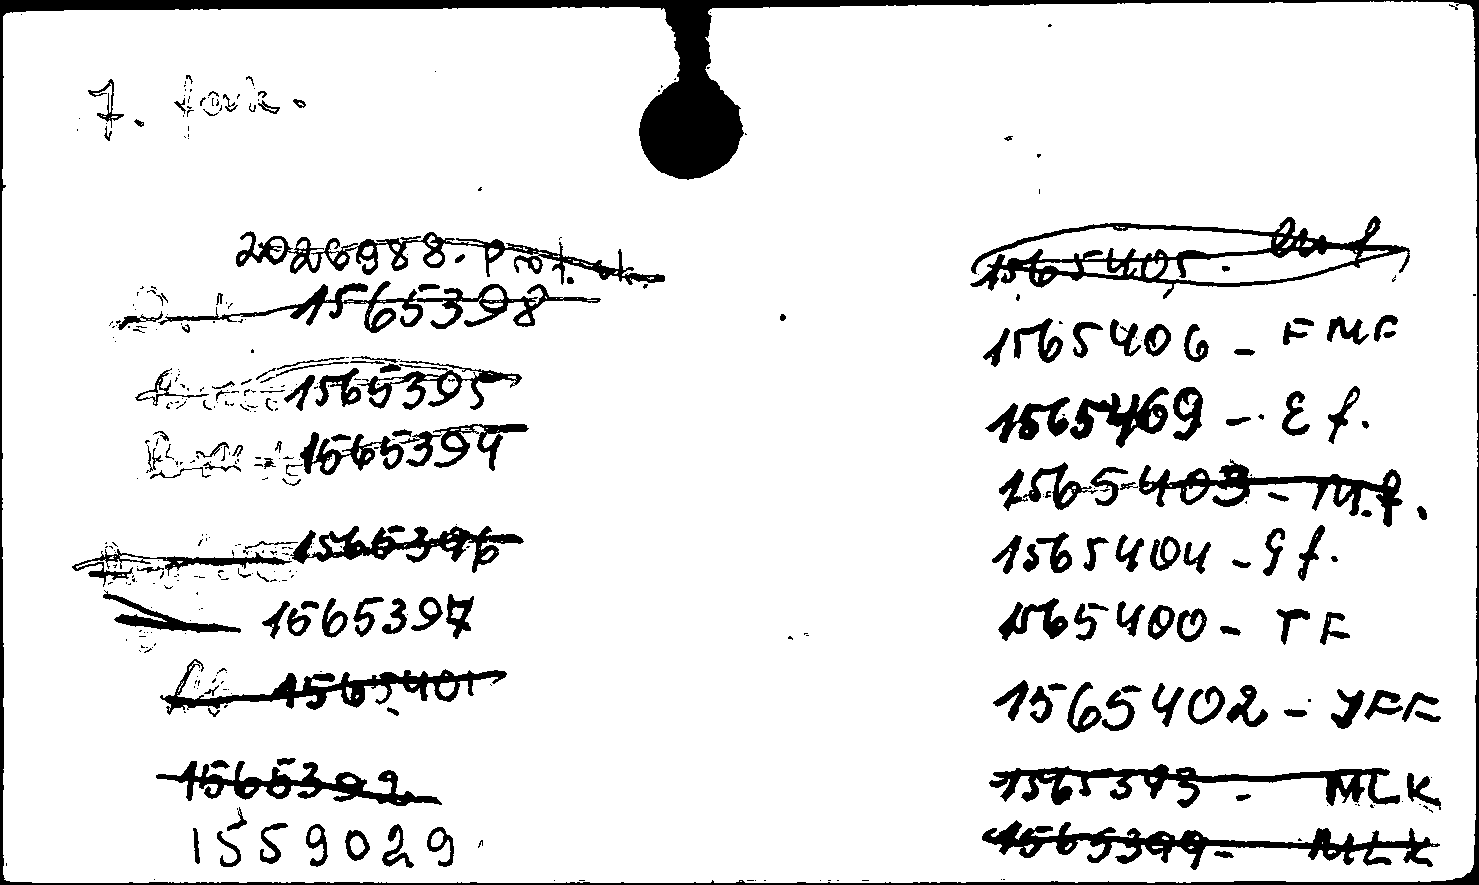 7. fork.
2026988. Prof. ok.
D. k 1565398
1565395
1565394
1565396
1565397
1565401
1565392
1559029
1565405.
1565406 - FMF
1565469 - Ef.
1565403 - M.f.
1565404 - Gf.
1565400 - TF
1565402 - YFF
1565393 - MLK
1565399 - MLK